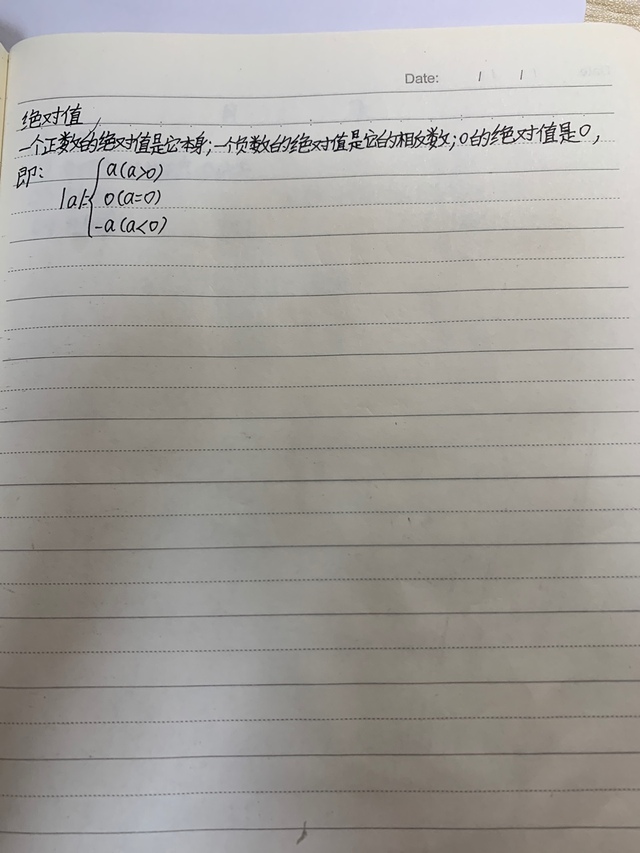 Date: / /
绝对值
一个正数的绝对值是它本身;一个负数的绝对值是它的相反数;0的绝对值是0,
即:
|a|={
a(a>0)
0(a=0)
-a(a<0)